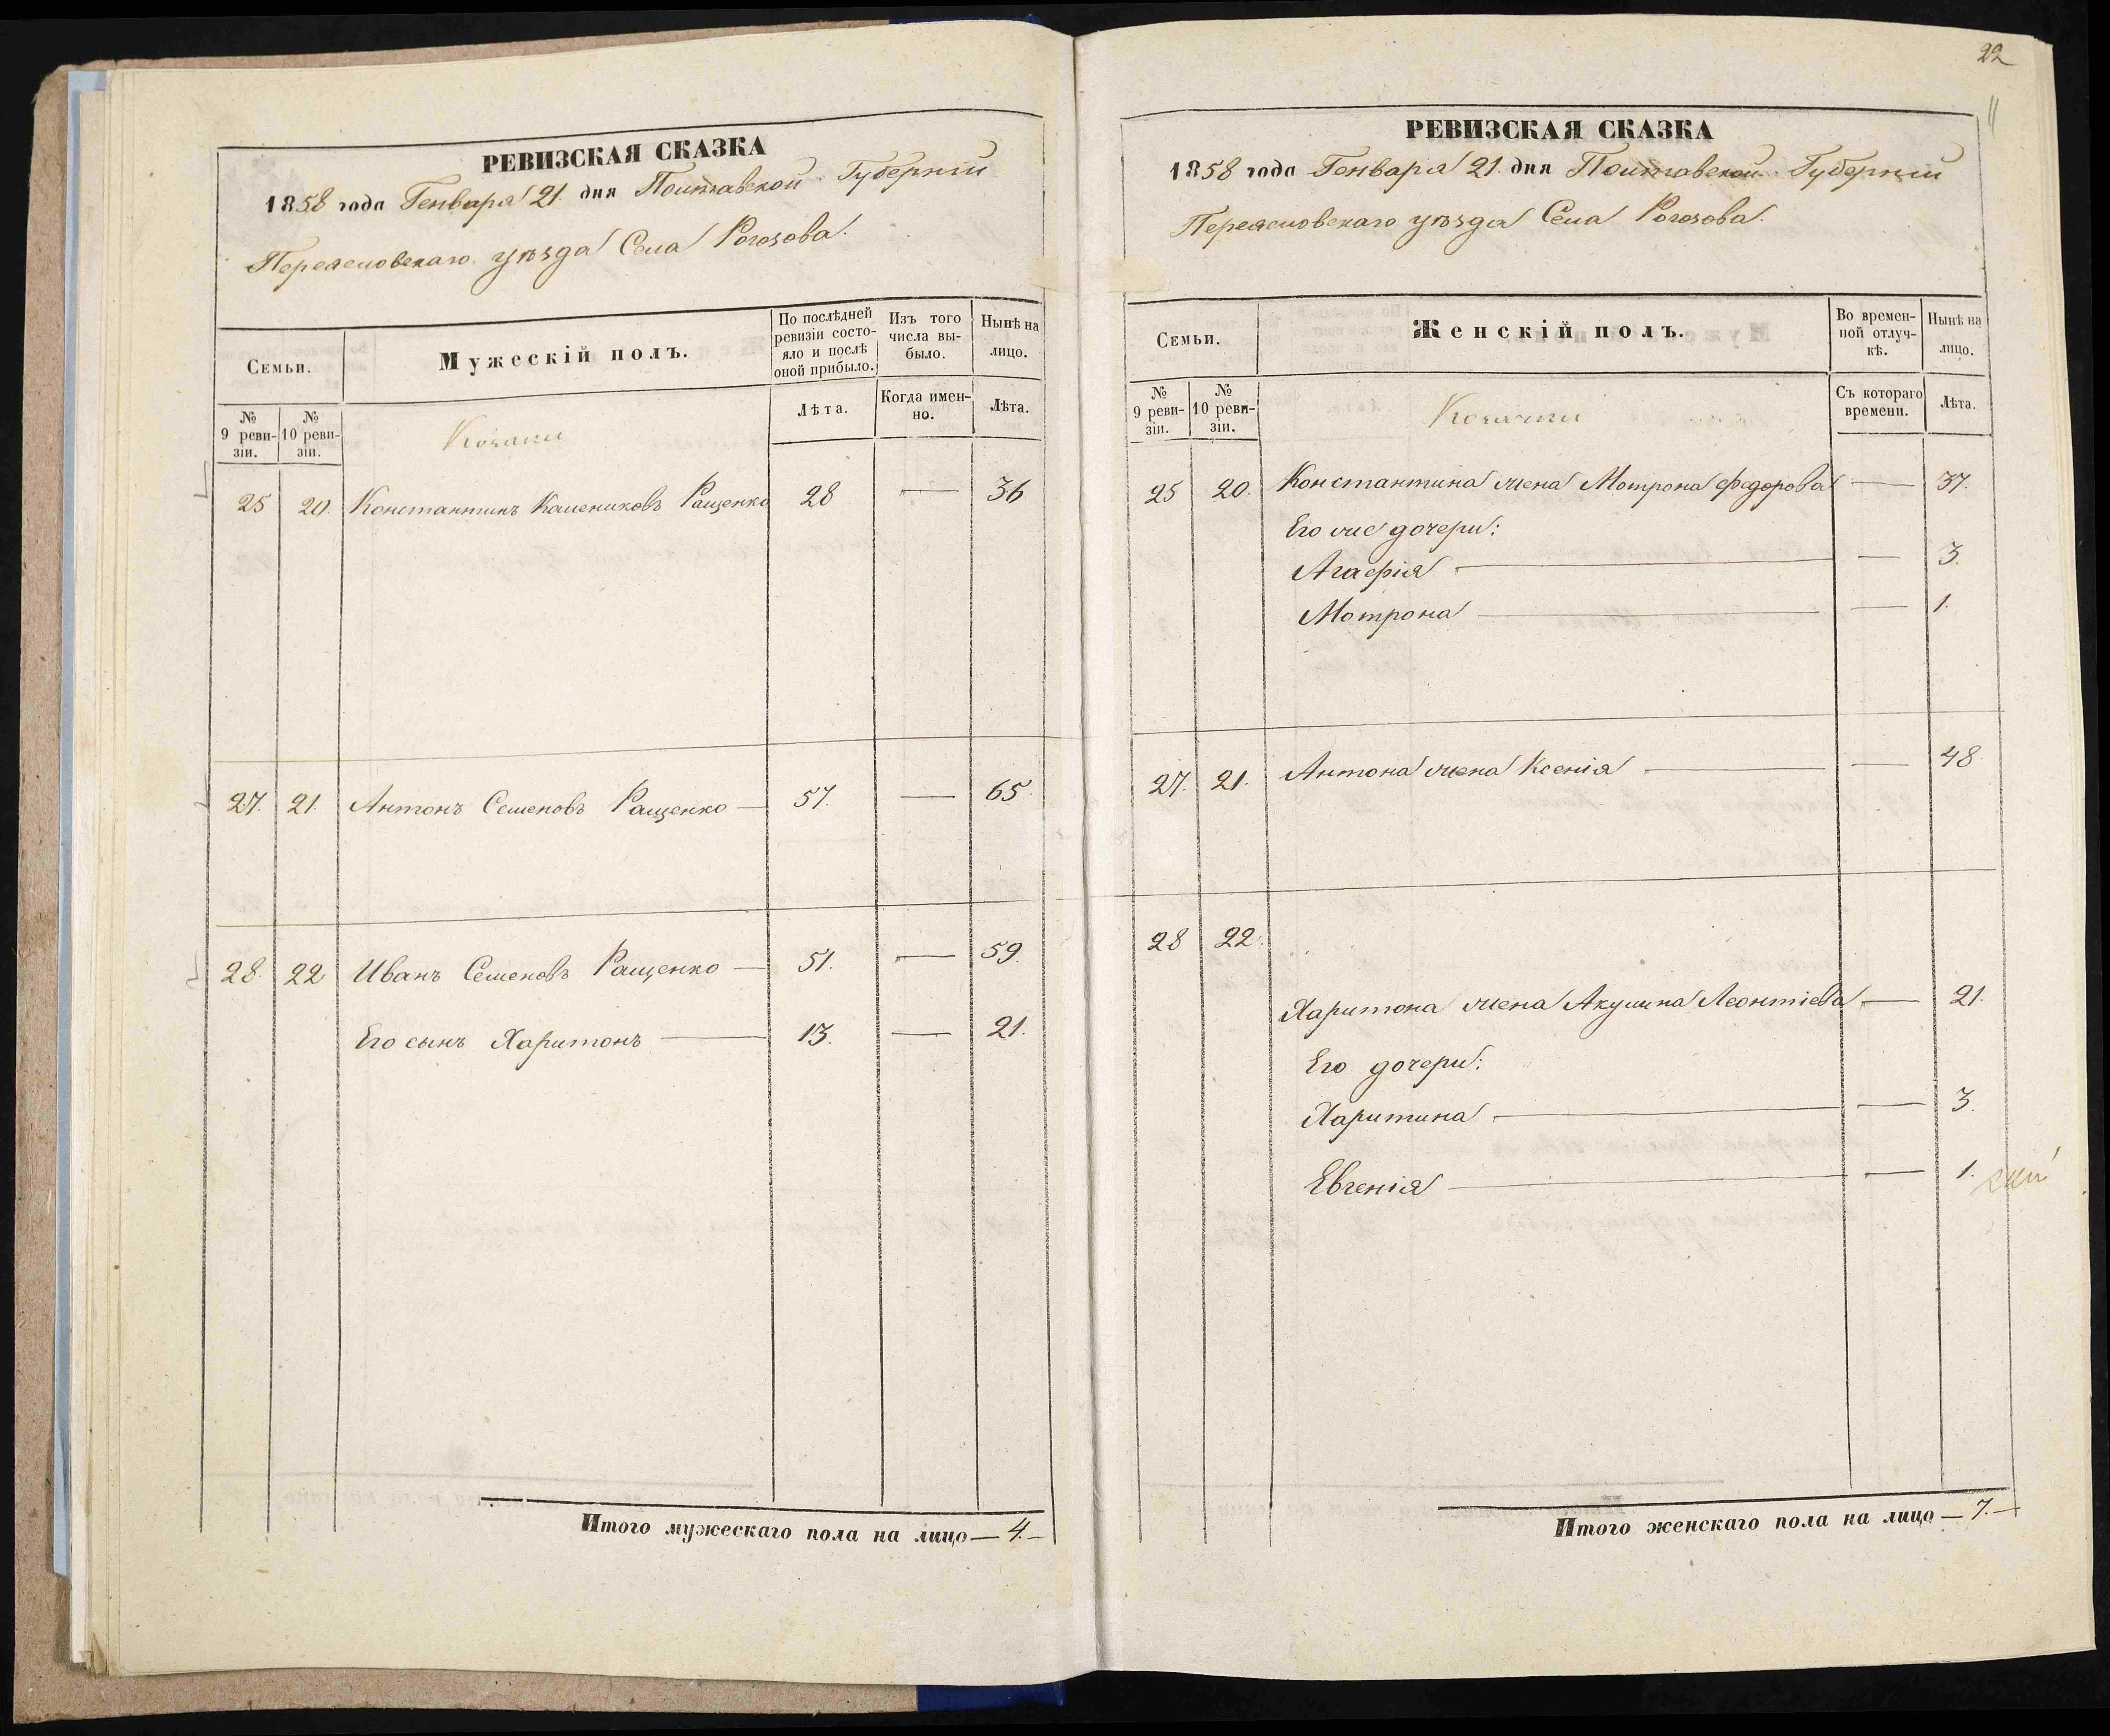 РЕВИЗСКАЯ СКАЗКА
1858 года Генваря 21. дня Полтавской Губерніи
Переясловскаго уѣзда Села Рогозова.
Семьи.
Мужескій полъ.
По послѣдней ревизіи состояло и послѣ оной прибыло.
Изъ того числа выбыло.
Нынѣ на лицо.
№ 9 ревизіи.
№ 10 ревизіи.
Козаки
Лѣта.
Когда именно.
Лѣта.
25 20. Константинъ Ращенко 28 — 36
27. 21. Антонъ Семеновъ Ращенко — 57. — 65.
28. 22 Иванъ Семеновъ Ращенко — 51. — 59.
Его сынъ Харитонъ — 13. — 21.
Итого мужескаго пола на лицо — 4. —
22
11
РЕВИЗСКАЯ СКАЗКА
1858 года Генваря 21. дня Полтавской Губерніи
Переясловскаго уѣзда Села Рогозова.
Семьи.
Женскій полъ.
Во временной отлучкѣ.
Нынѣ на лицо.
№ 9 ревизіи.
№ 10 ревизіи.
Козачки
Съ котораго времени.
Лѣта.
25 20. Константина жена Мотрона Федорова — 37.
Его же дочери:
Агафія — — 3.
Мотрона — — 1.
27. 21. Антона жена Ксенія — — 48
28 22.
Харитона жена Акулина Леонтіева — 21.
Его дочери:
Харитина — — 3.
Евгенія — — 1.
Итого женскаго пола на лицо — 7. —